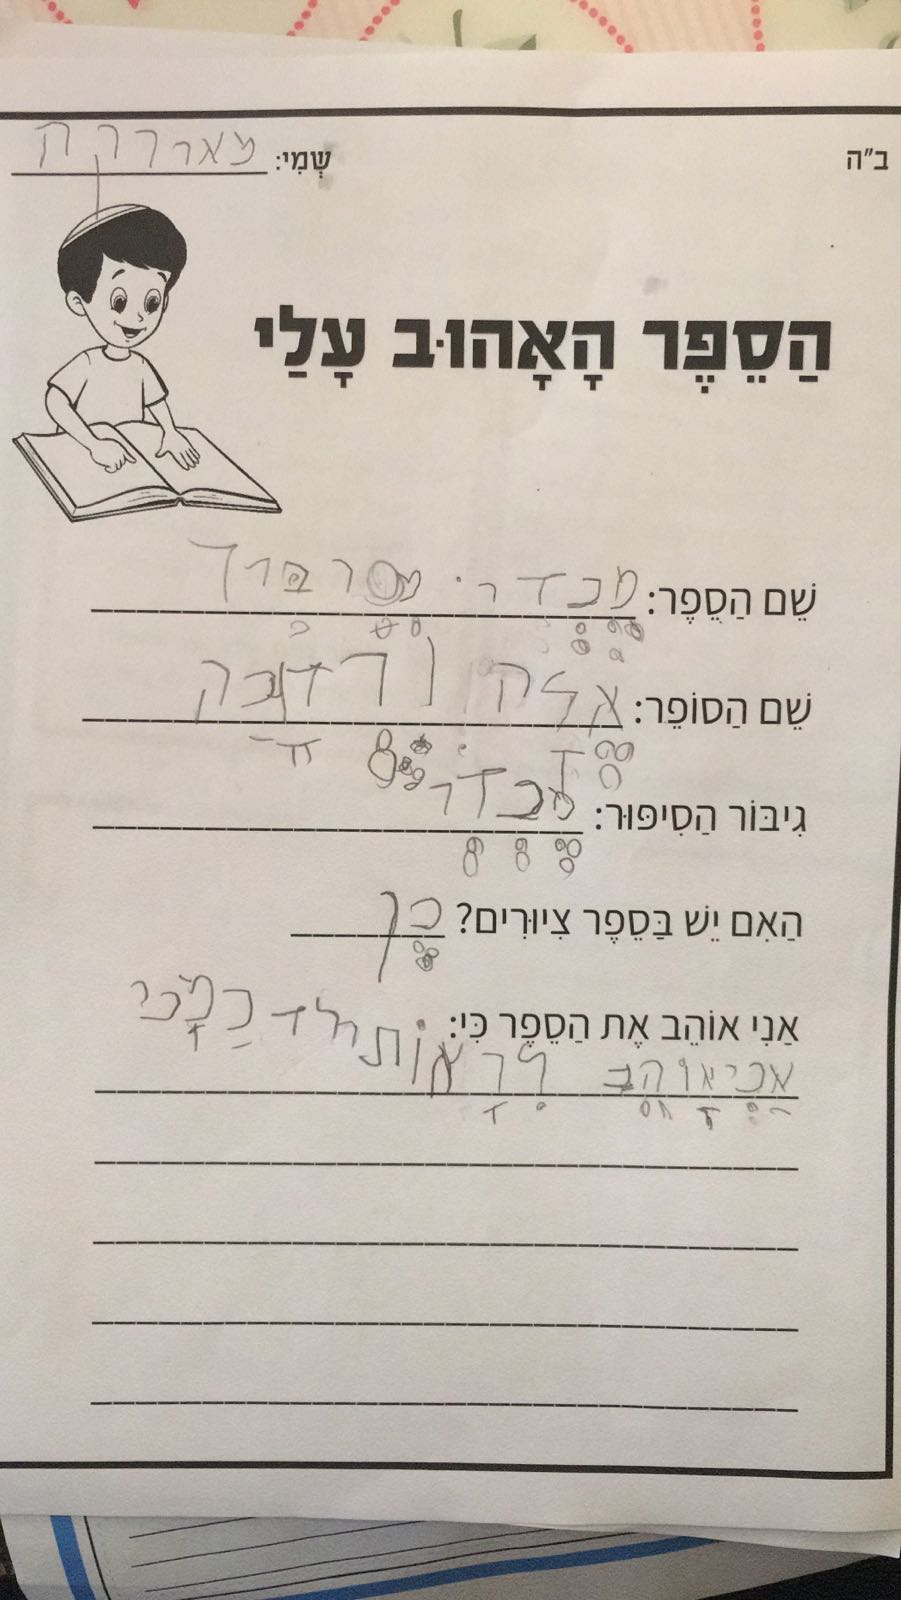 ב"ה
שְׁמִי:
הַסֵּפֶר הָאָהוּב עָלַי
שֵׁם הַסֵּפֶר: מכדר
שֵׁם הַסוֹפֵר: אלה
גִיבּוֹר הַסִיפּוּר: מכדר
הַאִם יֵשׁ בַּסֵפֶר צִיוּרִים? כן
אַנִי אוֹהֵב אֶת הַסֵפֶר כִּי:
אכי אוהב לראות ילד כמכי